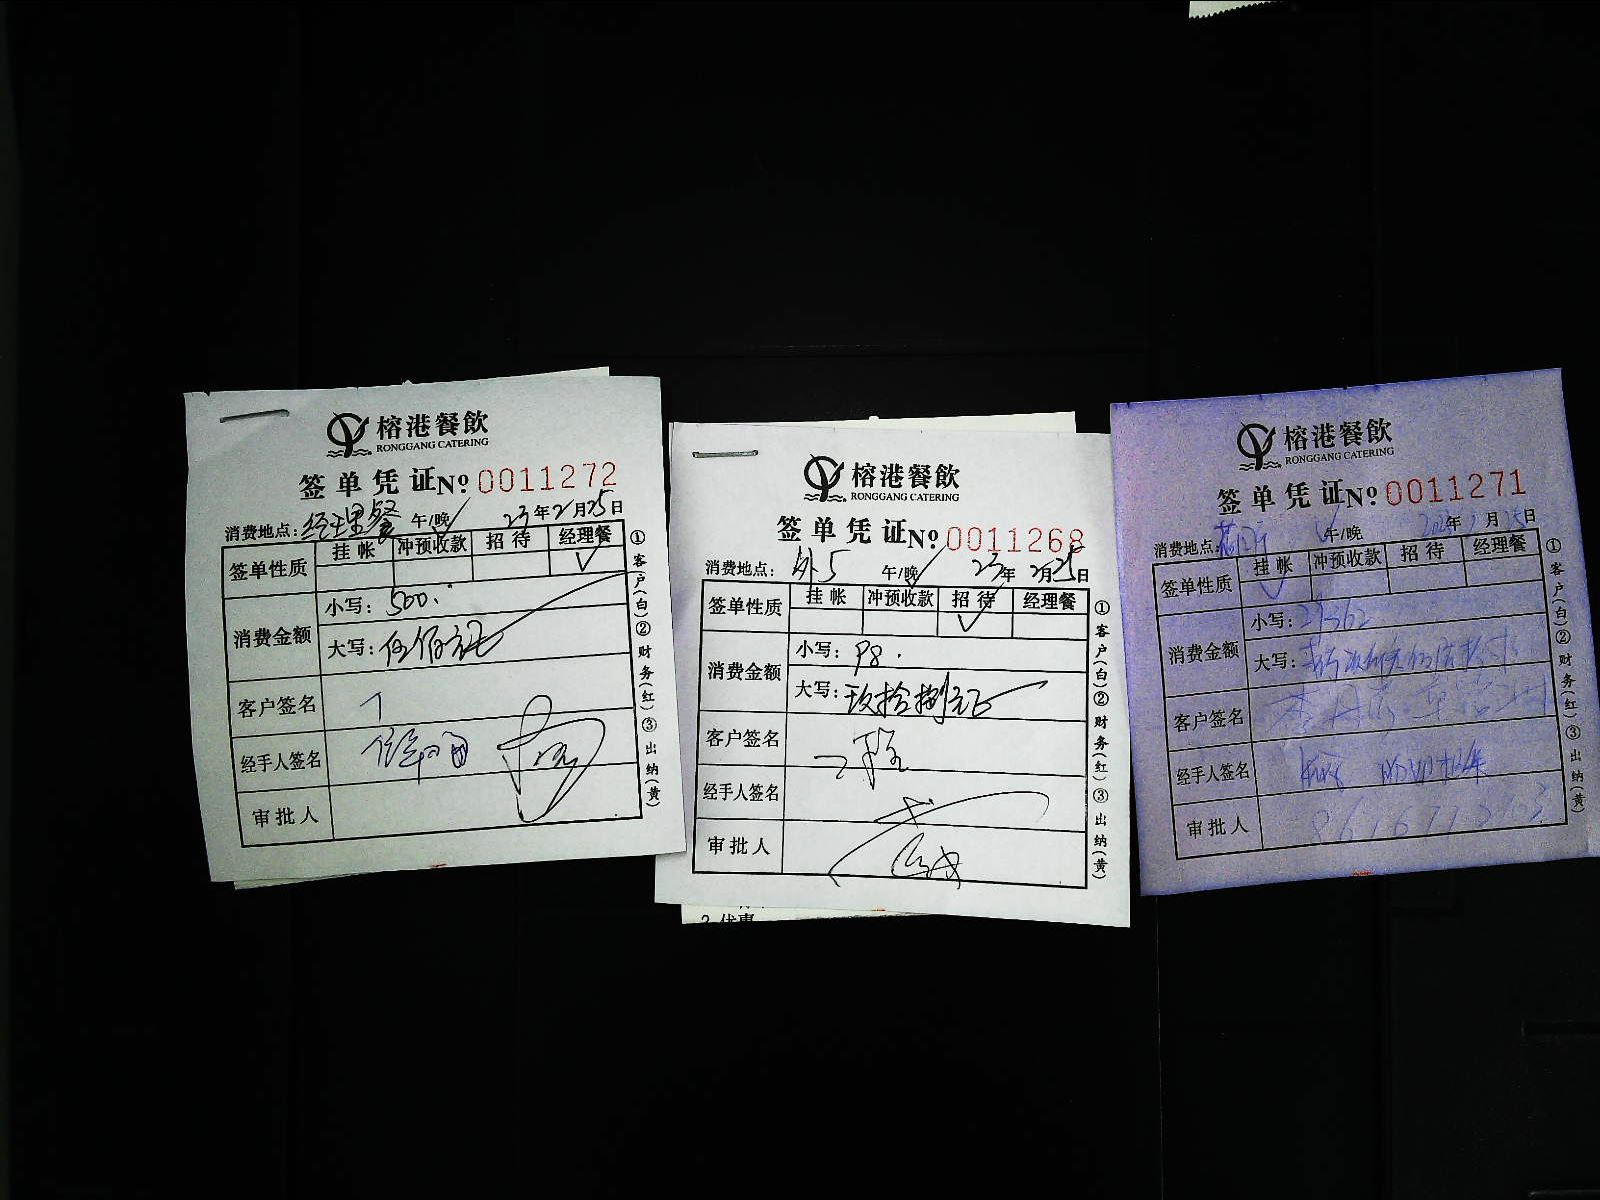 榕港餐飲
RONGGANG CATERING
签单凭证 No 0011272
消费地点：经理餐 午/晚 23年2月25日
签单性质 挂帐 冲预收款 招待 经理餐
✓
消费金额 小写：500.
大写：伍佰元正
客户签名
经手人签名
审批人
①客户(白)②财务(红)③出纳(黄)
榕港餐飲
RONGGANG CATERING
签单凭证 No 0011268
消费地点：外5 午/晚 23年2月25日
签单性质 挂帐 冲预收款 招待 经理餐
✓
消费金额 小写：98.
大写：玖拾捌元正
客户签名
经手人签名
审批人
①客户(白)②财务(红)③出纳(黄)
2 优惠
榕港餐飲
RONGGANG CATERING
签单凭证 No 0011271
消费地点： 午/晚 年 月25日
签单性质 挂帐 冲预收款 招待 经理餐
✓
消费金额 小写：29362
大写：
客户签名
经手人签名
审批人
①客户(白)②财务(红)③出纳(黄)